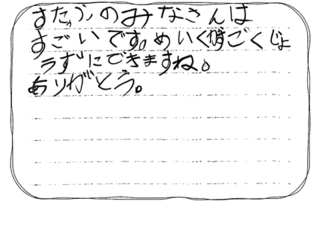 すたっふのみなさんは
すごいです。めいくがすごくじょ
うずにできますね。
ありがとう。